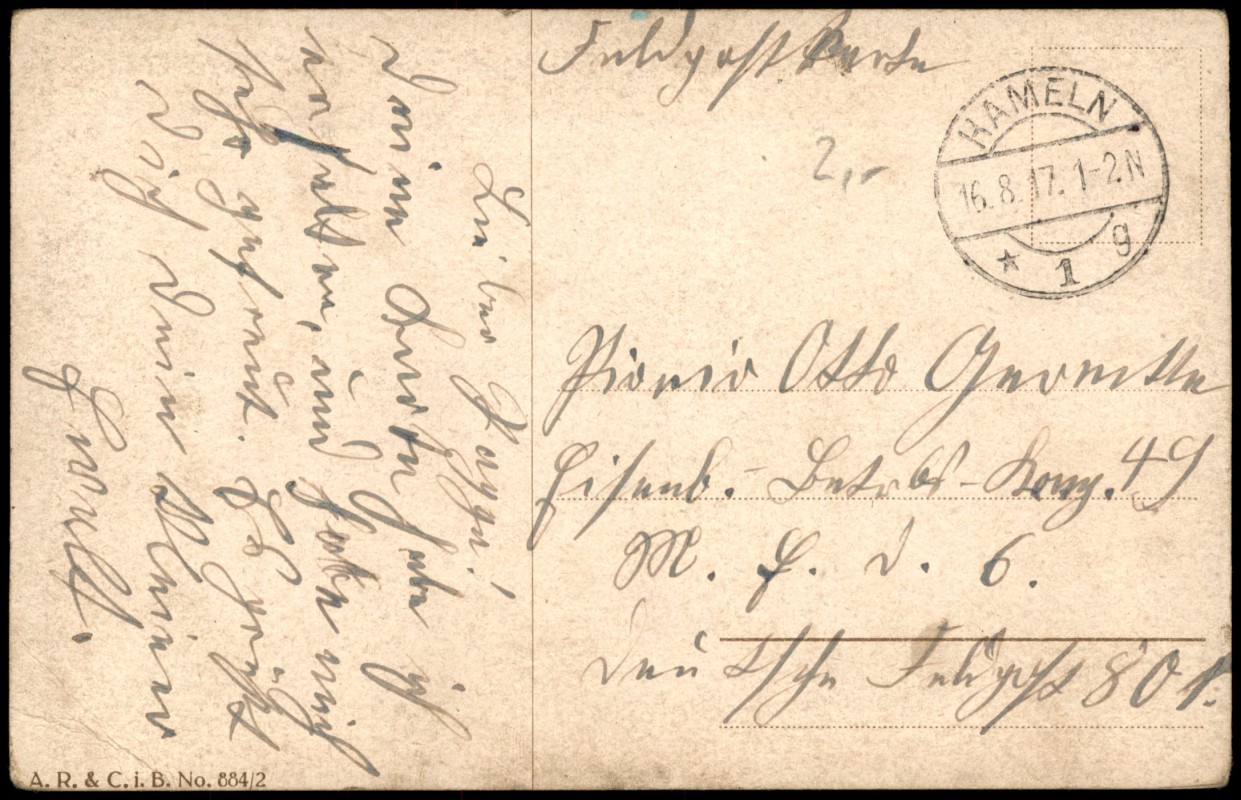 Feldpostkarte
HAMELN
16.8.17. 1-2N
* 1 g
2,-
Pionier Otto
Eisenb.-Betrbs-Komp. 49
M. E. D. 6.
Deutsche Feldpost 801.
Lieber Pappa!
Deine Karte habe ich
erhalten, und habe mich
sehr gefreut. Es grüßt
Dich dein kleiner
Ewalt.
A. R. & C. i. B. No. 884/2